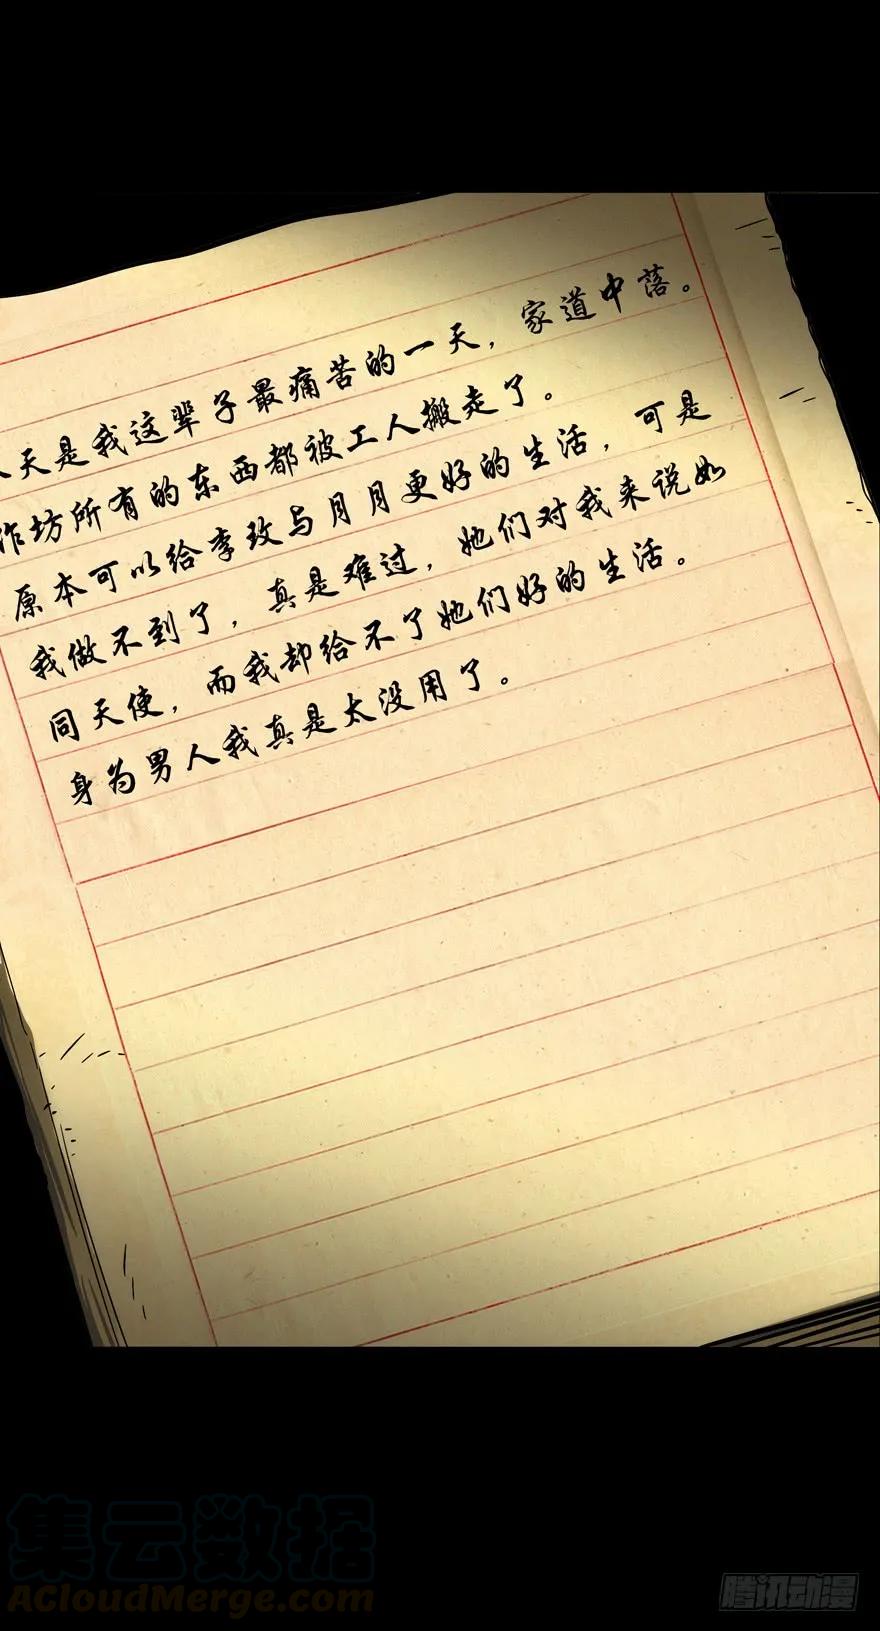 天是我这辈子最痛苦的一天，家道中落。
作坊所有的东西都被工人搬走了。
原本可以给李玫与月月更好的生活，可是
我做不到了，真是难过，她们对我来说如
同天使，而我却给不了她们好的生活。
身为男人我真是太没用了。
集云数据
ACloudMerge.com
腾讯动漫